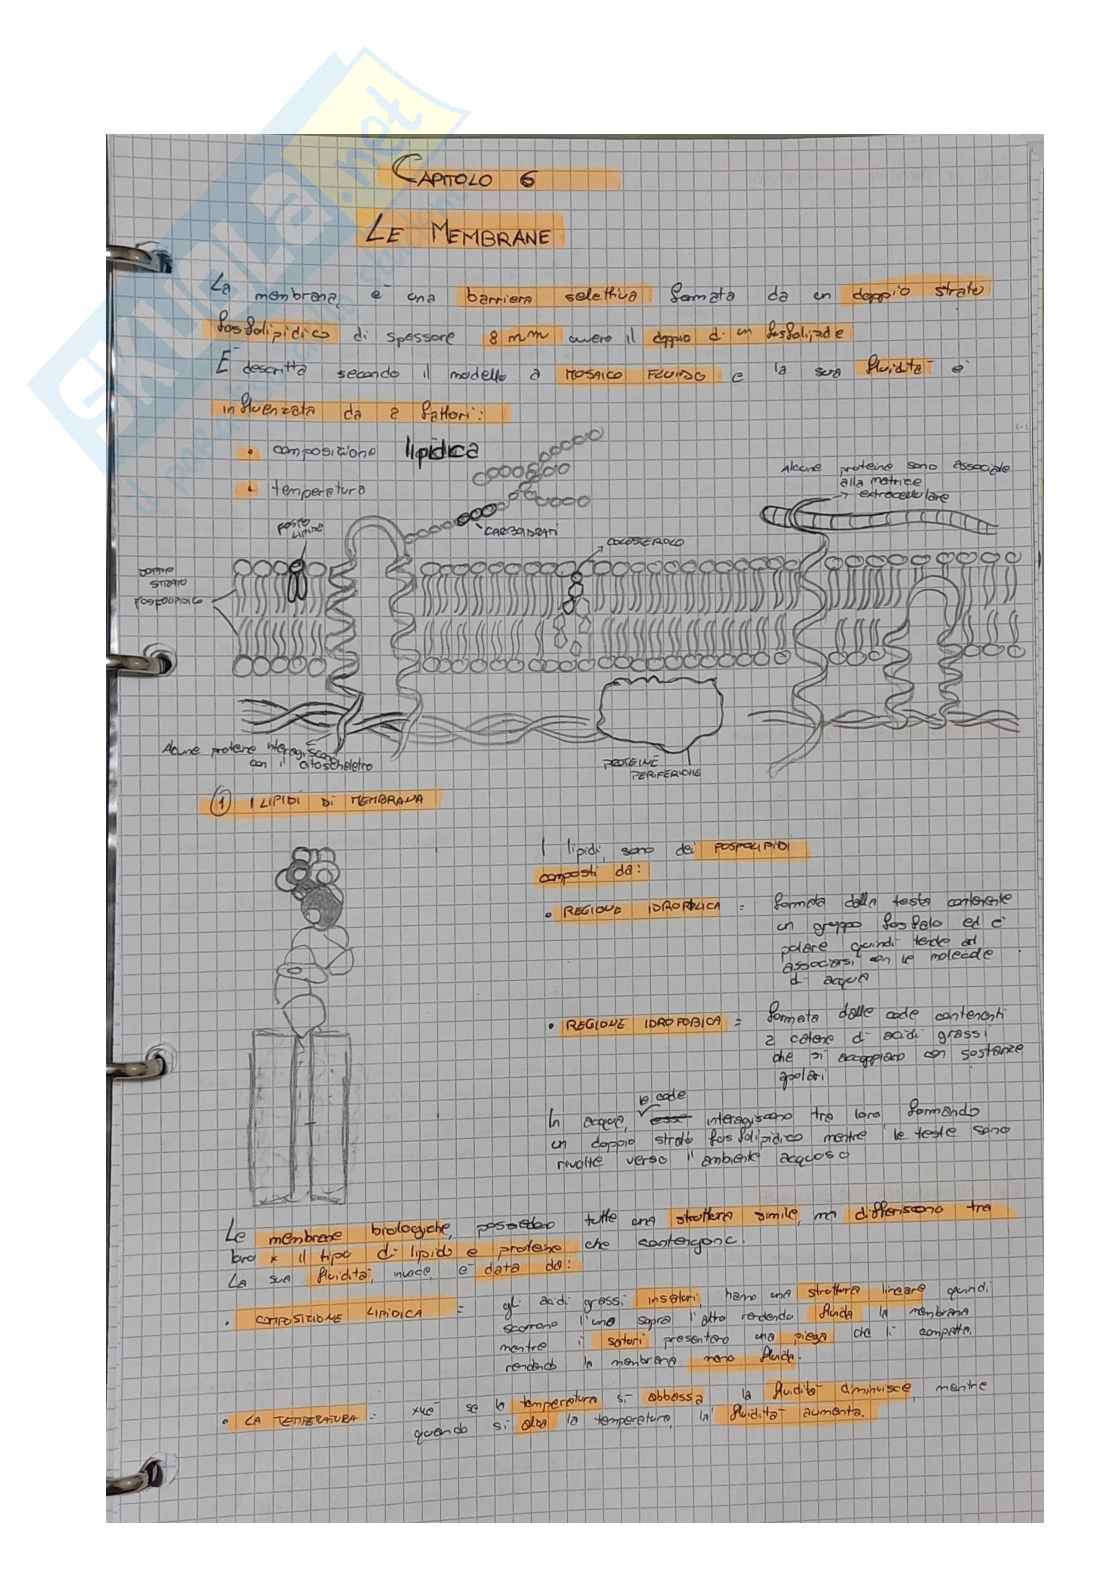 SKUOLA.net
CAPITOLO 6
LE MEMBRANE
La membrana, è una barriera selettiva formata da un doppio strato
fosfolipidico di spessore 8 mm ovvero il doppio di un fosfolipide
È descritta secondo il modello a MOSAICO FLUIDO e la sua fluidità è
influenzata da 2 fattori:
• composizione lipidica
• temperatura
Alcune proteine sono associate
alla matrice
→ extracellulare
FOSFO
LIPIDE
CARBOIDRATI
COLESTEROLO
DOPPIO
STRATO
FOSFOLIPIDICO
Alcune proteine interagiscono
con il citoscheletro
PROTEINE
PERIFERICHE
① I LIPIDI DI MEMBRANA
I lipidi, sono dei FOSFOLIPIDI
composti da:
• REGIONE IDROFILICA = formata dalla testa contenente
un gruppo fosfato ed è
polare quindi tende ad
associarsi con le molecole
di acqua
• REGIONE IDROFOBICA = formata dalle code contenenti
2 catene di acidi grassi
che si accoppiano con sostanze
apolari
le code
In acqua, esse interagiscono tra loro formando
un doppio strato fosfolipidico mentre le teste sono
rivolte verso l'ambiente acquoso
Le membrane biologiche, possiedono tutte una struttura simile, ma differiscono tra
loro x il tipo di lipido e proteine che contengono.
La sua fluidità, invece, è data da:
• COMPOSIZIONE LIPIDICA = gli acidi grassi insaturi, hanno una struttura lineare quindi
scorrono l'uno sopra l'altro rendendo fluida la membrana
mentre i saturi presentano una piega che li compatta,
rendendo la membrana meno fluida.
• LA TEMPERATURA = xké se la temperatura si abbassa la fluidità diminuisce, mentre
quando si alza la temperatura, la fluidità aumenta.